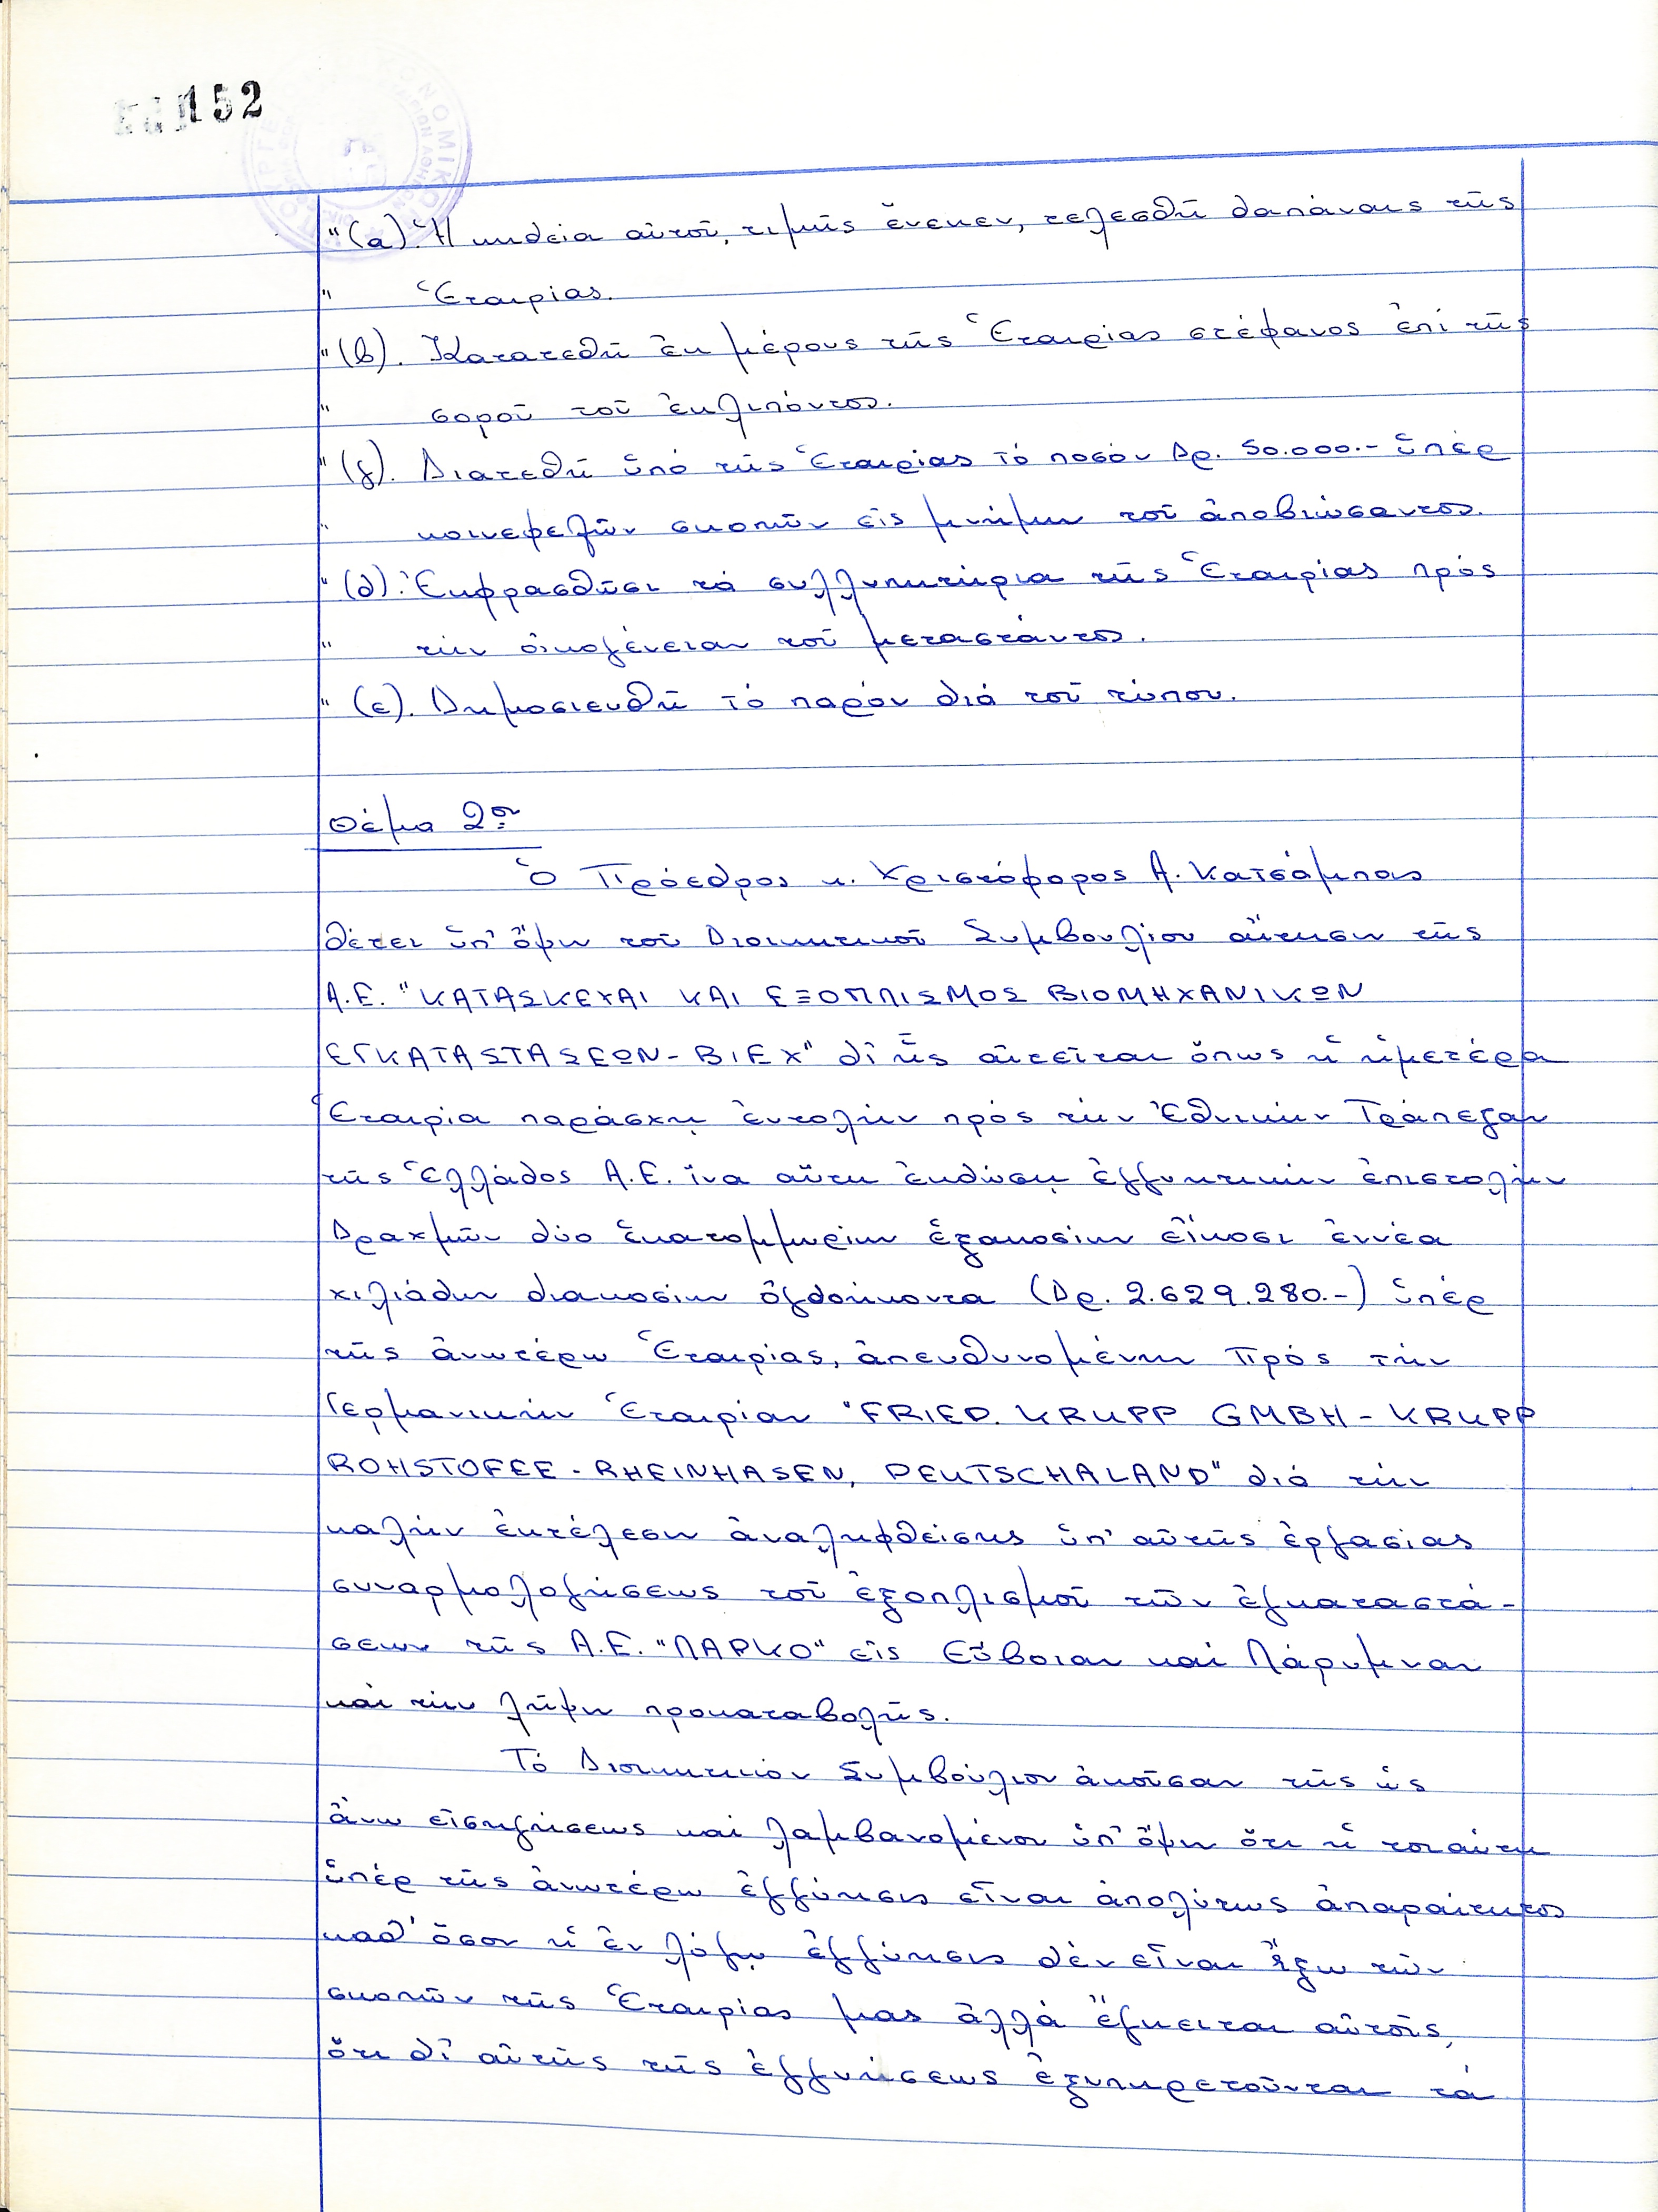 152
"(α). Ἡ κηδεία αὐτοῦ, τιμῆς ἕνεκεν, τελεσθῆ δαπάναις τῆς
" Ἑταιρίας.
"(β). Κατατεθῆ ἐκ μέρους τῆς Ἑταιρίας στέφανος ἐπί τῆς
" σοροῦ τοῦ ἐκλιπόντος.
"(γ). Διατεθῆ ὑπό τῆς Ἑταιρίας τό ποσόν Δρ. 50.000.- ὑπέρ
" κοινωφελῶν σκοπῶν εἰς μνήμην τοῦ ἀποβιώσαντος.
"(δ). Ἐκφρασθῶσι τά συλλυπητήρια τῆς Ἑταιρίας πρός
" τήν οἰκογένειαν τοῦ μεταστάντος.
"(ε). Δημοσιευθῆ τό παρόν διά τοῦ τύπου.
Θέμα 2ον
Ὁ Πρόεδρος κ. Χριστόφορος Α. Κατσάμπας
θέτει ὑπ' ὄψιν τοῦ Διοικητικοῦ Συμβουλίου αἴτησιν τῆς
Α.Ε. "ΚΑΤΑΣΚΕΥΑΙ ΚΑΙ ΕΞΟΠΛΙΣΜΟΣ ΒΙΟΜΗΧΑΝΙΚΩΝ
ΕΓΚΑΤΑΣΤΑΣΕΩΝ-ΒΙΕΧ" δι' ἧς αἰτεῖται ὅπως ἡ ἡμετέρα
Ἑταιρία παράσχῃ ἐντολήν πρός τήν Ἐθνικήν Τράπεζαν
τῆς Ἑλλάδος Α.Ε. ἵνα αὕτη ἐκδώσῃ ἐγγυητικήν ἐπιστολήν
Δραχμῶν δύο ἑκατομμυρίων ἑξακοσίων εἴκοσι ἐννέα
χιλιάδων διακοσίων ὀγδοήκοντα (Δρ. 2.629.280.-) ὑπέρ
τῆς ἀνωτέρω Ἑταιρίας, ἀπευθυνομένην πρός τήν
Γερμανικήν Ἑταιρίαν "FRIED. KRUPP GMBH - KRUPP
ROHSTOFEE - RHEINHASEN, DEUTSCHALAND" διά τήν
καλήν ἐκτέλεσιν ἀναληφθείσης ὑπ' αὐτῆς ἐργασίας
συναρμολογήσεως τοῦ ἐξοπλισμοῦ τῶν ἐγκαταστά-
σεων τῆς Α.Ε. "ΛΑΡΚΟ" εἰς Εὔβοιαν καί Λάρυμναν
καί τήν λῆψιν προκαταβολῆς.
Τό Διοικητικόν Συμβούλιον ἀκοῦσαν τῆς ὡς
ἄνω εἰσηγήσεως καί λαμβανομένου ὑπ' ὄψιν ὅτι ἡ τοιαύτη
ὑπέρ τῆς ἀνωτέρω ἐγγύησις εἶναι ἀπολύτως ἀπαραίτητος
καθ' ὅσον ἡ ἐν λόγῳ ἐγγύησις δέν εἶναι ἔξω τῶν
σκοπῶν τῆς Ἑταιρίας μας ἀλλά ἔγκειται αὐτοῖς,
ὅτι δι' αὐτῆς τῆς ἐγγυήσεως ἐξυπηρετοῦνται τά